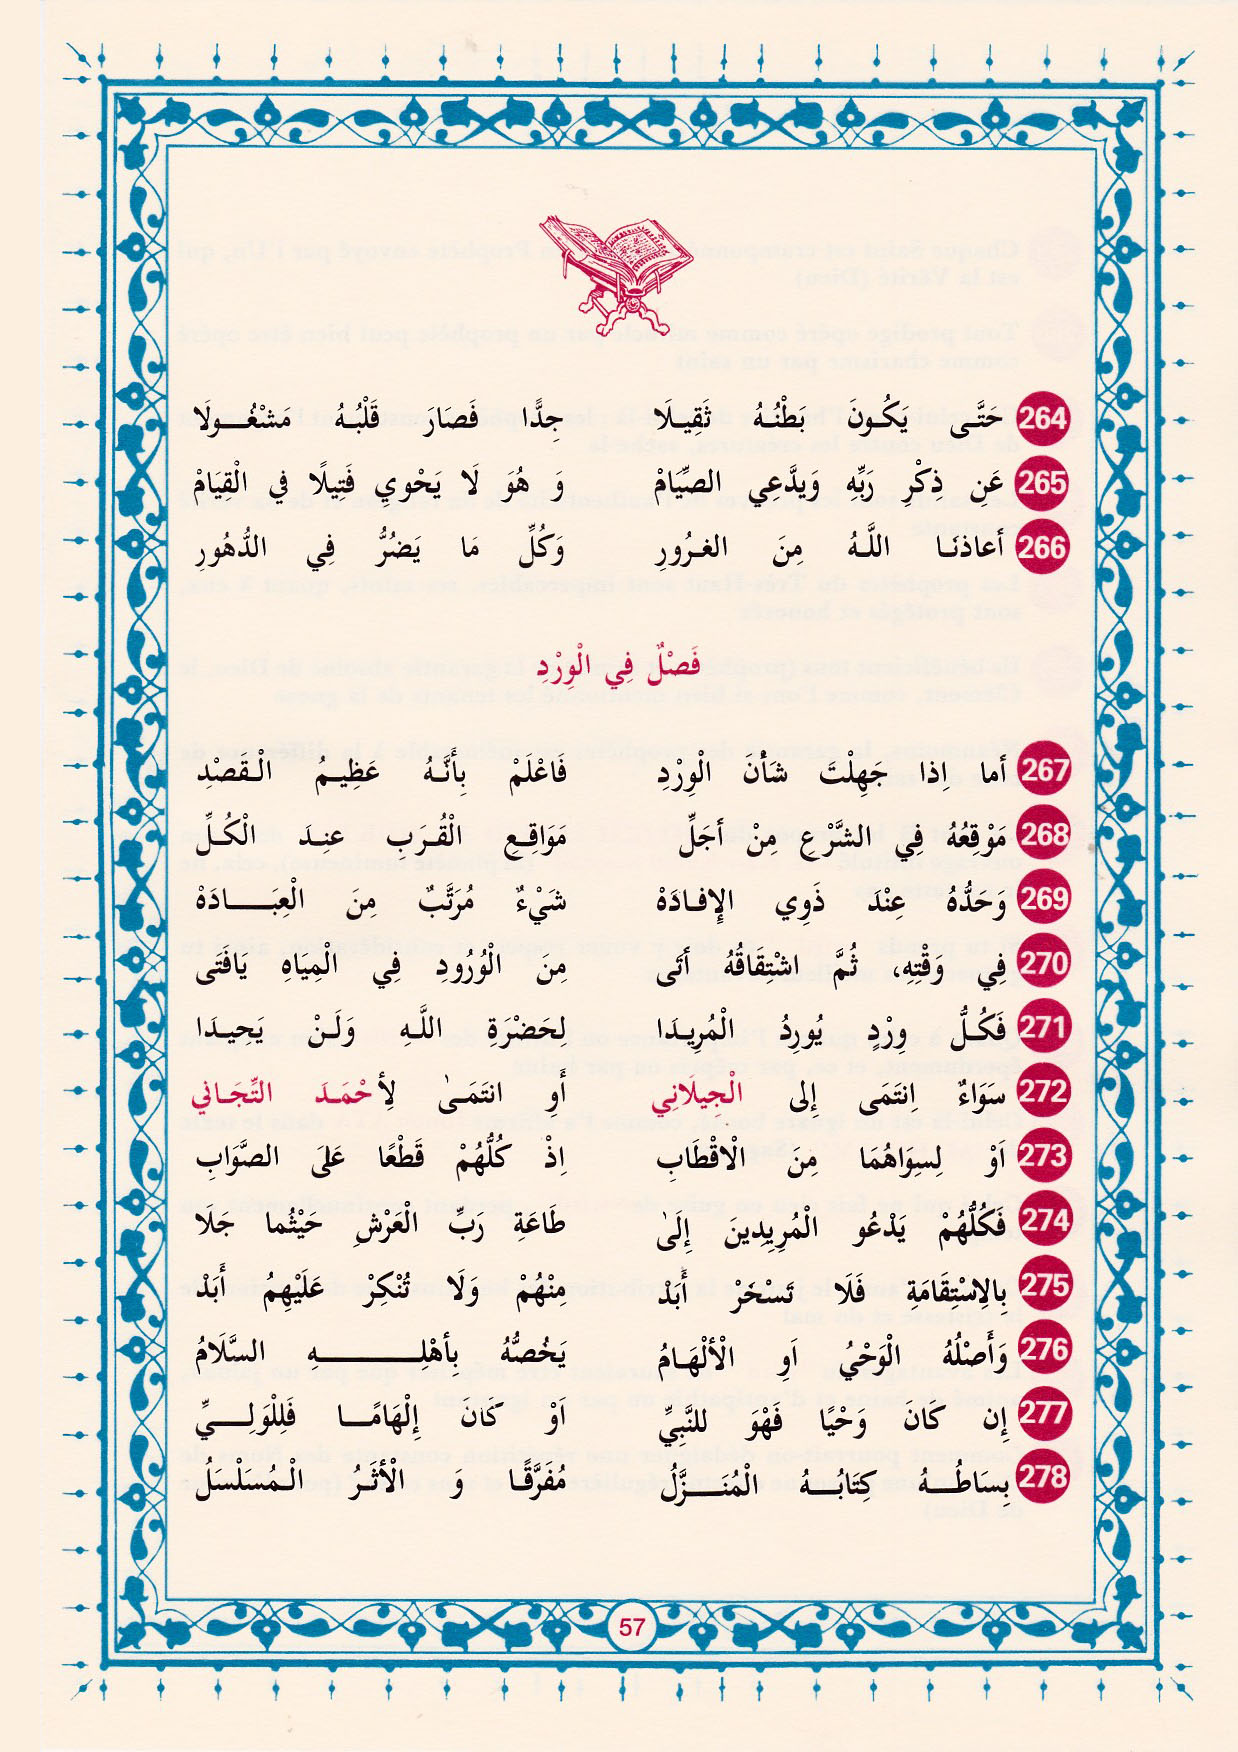 264 حَتَّى يَكُونَ بَطْنُهُ ثَقِيلَا جِدًّا فَصَارَ قَلْبُهُ مَشْغُولَا
265 عَنِ ذِكْرِ رَبِّهِ وَيدَّعِي الصِّيَامْ وَ هُوَ لَا يَحْوِي فَتِيلًا في الْقِيَامْ
266 أعاذنَا اللَّهُ مِنَ الغرُورِ وَكُلِّ مَا يَضُرُّ فِي الدُّهُورِ
فَصْلٌ فِي الْوِرْدِ
267 أما إذا جَهِلْتَ شَأنَ الْوِرْدِ فَاعْلَمْ بِأَنَّهُ عَظِيمُ الْقَصْدِ
268 مَوْقِعُهُ فِي الشَّرْعِ مِنْ أجَلِّ مَوَاقِعِ الْقُرَبِ عندَ الْكُلِّ
269 وَحَدُّهُ عِنْدَ ذَوِي الإفادَهْ شَيْءٌ مُرَتَّبٌ مِنَ الْعِبَادَهْ
270 فِي وَقْتِهِ، ثُمَّ اشْتِقَاقُهُ أتَى مِنَ الْوُرُودِ فِي الْمِيَاهِ يَافَتَى
271 فَكُلُّ وِرْدٍ يُورِدُ الْمُرِيدَا لِحَضْرَةِ اللَّهِ وَلَنْ يَحِيدَا
272 سَوَاءٌ اِنتَمَى إلى الْجِيلَانِي أَوِ انتَمَىٰ لِأحْمَدَ التِّجَانِي
273 أَوْ لِسِوَاهُمَا مِنَ الْاقْطَابِ إذْ كُلُّهُمْ قَطْعًا عَلَى الصَّوَابِ
274 فَكُلُّهُمْ يَدْعُو الْمُرِيدِينَ إلىٰ طَاعَةِ رَبِّ الْعَرْشِ حَيْثُما جلَا
275 بِالِاسْتِقَامَةِ فَلَا تَسْخَرْ أَبَدْ مِنْهُمْ وَلَا تُنْكِرْ عَلَيْهِمُ أَبَدْ
276 وَأصْلُهُ الْوَحْيُ اَوِ الْألْهَامُ يَخُصُّهُ بِأهْلِهِ السَّلَامُ
277 إن كَانَ وَحْيًا فَهْوَ للنَّبِيِّ اَوْ كَانَ إلْهَامًا فَلِلْوَلِيِّ
278 بِسَاطُهُ كِتَابُهُ الْمُنَزَّلُ مُفَرَّقًا وَ الْأثَرُ الْمُسَلْسَلُ
57